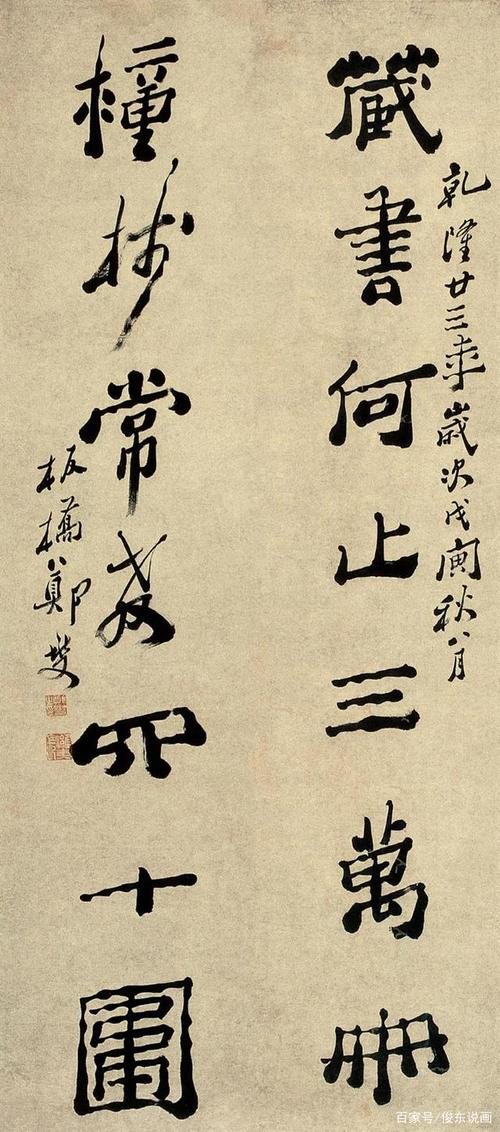 乾隆廿三年歲次戊寅秋八月
藏書何止三萬冊
種樹常教四十圍
板橋鄭燮
百家号/俊东说画